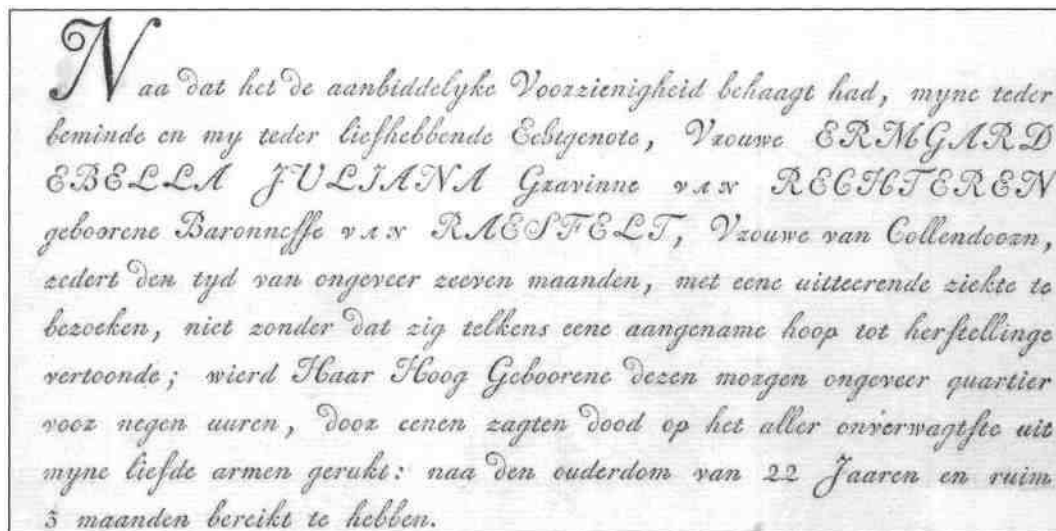 Naa dat het de aanbiddelyke Voorzienigheid behaagt had, myne teder
beminde en my teder liefhebbende Echtgenote, Vrouwe ERMGARD
EBELLA JULIANA Gravinne VAN RECHTEREN
geboorene Baronnesse VAN RAESFELT, Vrouwe van Collendoorn,
zedert den tyd van ongeveer zeeven maanden, met eene uitteerende ziekte te
bezoeken, niet zonder dat zig telkens eene aangename hoop tot herstellinge
vertoonde; wierd Haar Hoog Geboorene dezen morgen ongeveer quartier
voor negen uuren, door eenen zagten dood op het aller onverwagtste uit
myne liefde armen gerukt: naa den ouderdom van 22 Jaaren en ruim
3 maanden bereikt te hebben.